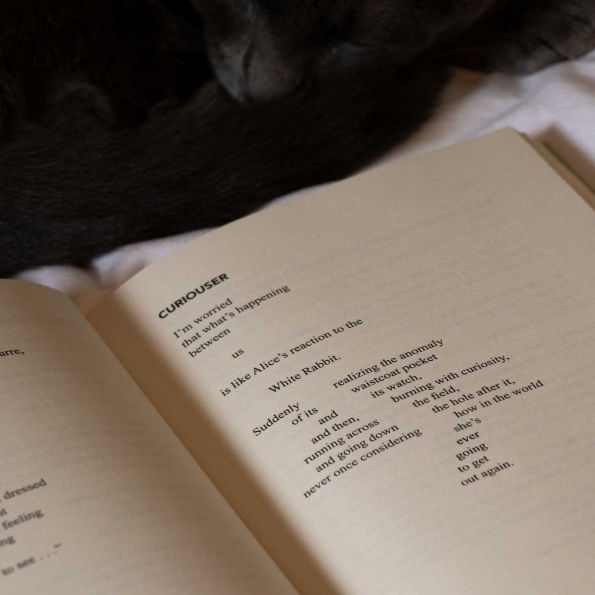 arre,
dressed
feeling
to see . . ."
CURIOUSER
I'm worried
that what's happening
between
us
is like Alice's reaction to the
White Rabbit.
Suddenly realizing the anomaly
of its waistcoat pocket
and its watch,
and then, burning with curiosity,
running across the field,
and going down the hole after it,
never once considering how in the world
she's
ever
going
to get
out again.